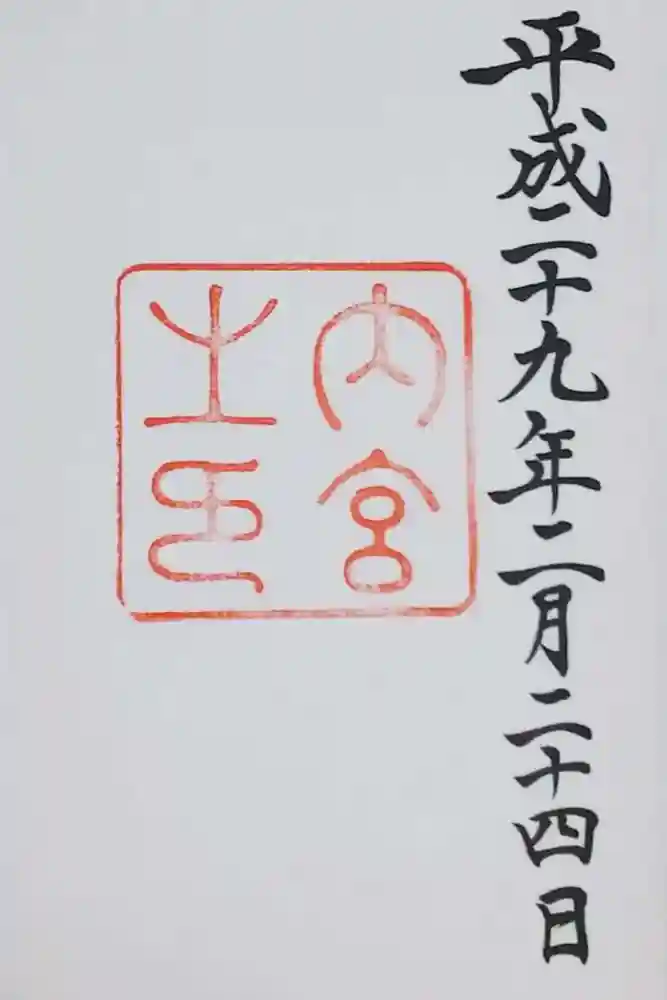 平成二十九年二月二十四日
内宮
之印